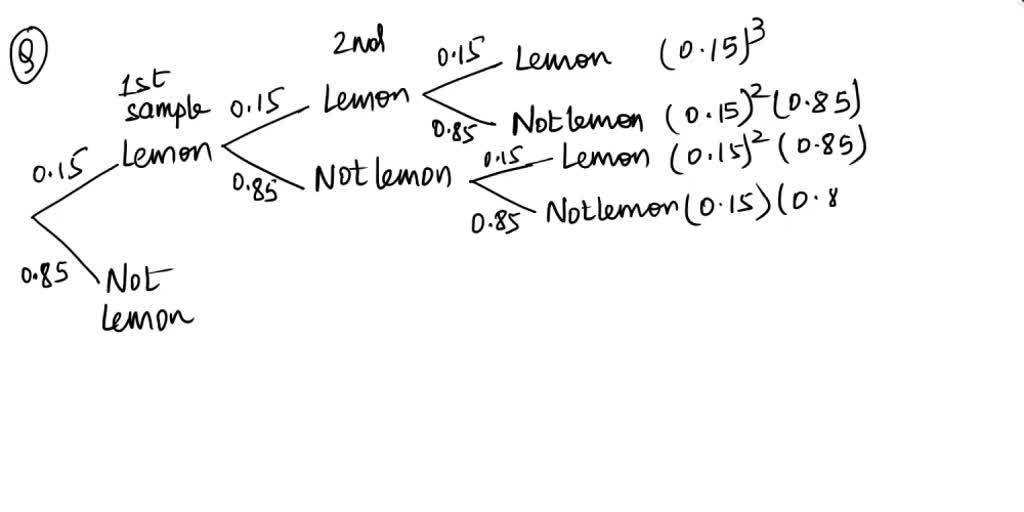 Q
1st
sample
2nd
0.15 Lemon
0.15 Lemon
0.15 Lemon (0.15)³
0.85 Not lemon (0.15)²(0.85)
0.85 Not lemon
0.15 Lemon (0.15)²(0.85)
0.85 Not lemon (0.15)(0.8
0.85 Not
lemon